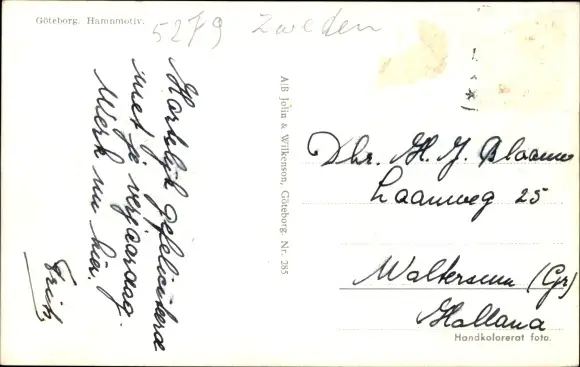 Göteborg. Hamnmotiv.
5279 Zweden
Hartelijk gefeliciteerd
met je verjaardag.
Werk nu hier.
Frits.
A/B Jolin & Wilkenson, Göteborg. Nr. 285
Dhr. H. J. Blaauw
Laanweg 25
Woltersum (Gr)
Holland
Handkolorerat foto.